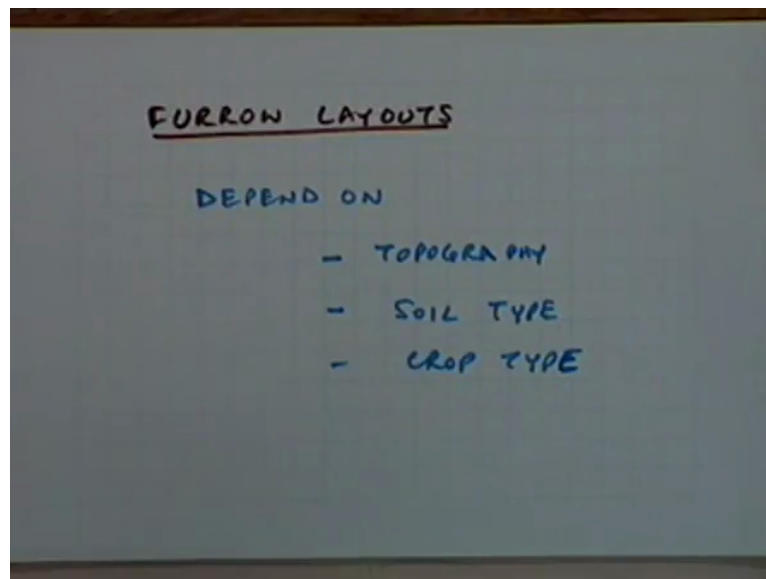 FURROW LAYOUTS
DEPEND ON
- TOPOGRAPHY
- SOIL TYPE
- CROP TYPE